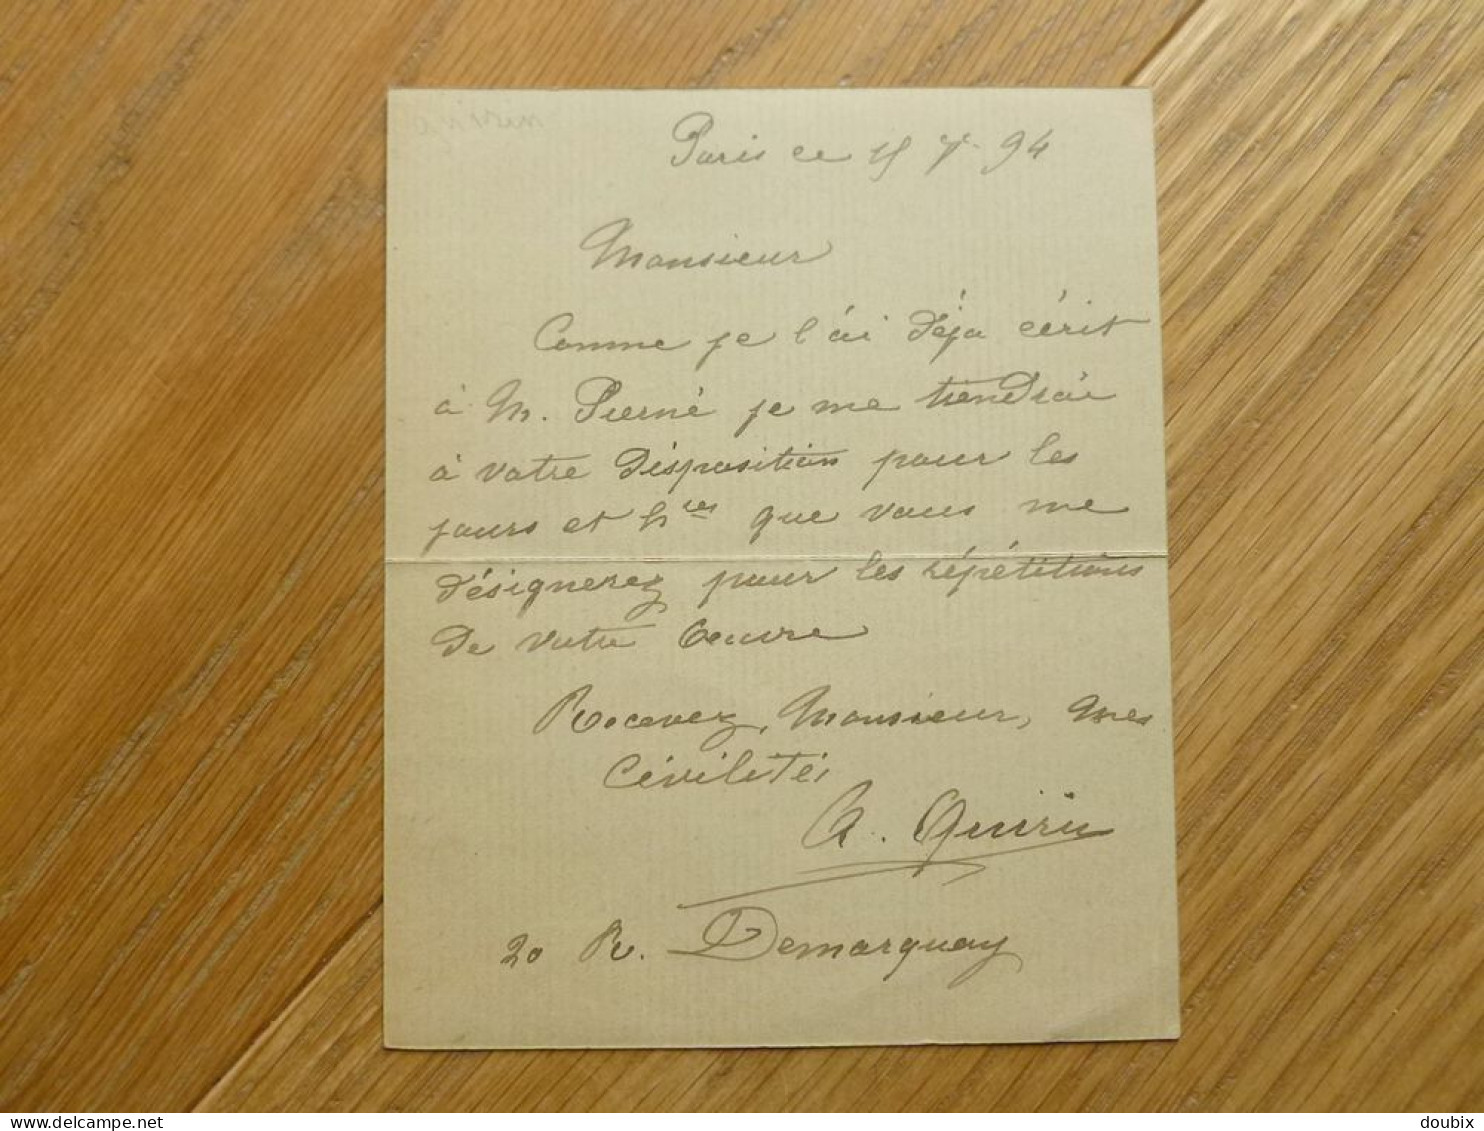 Paris ce 15 7re 94
Monsieur
Comme je l'ai déja écrit
à M. Pierné je me tiendrai
à votre disposition pour les
jours et hres que vous me
désignerez pour les répétitions
de votre Oeuvre
Recevez, Monsieur, mes
Civilités
A. Quirin
20 R. Demarquay
www.delcampe.net
doubix